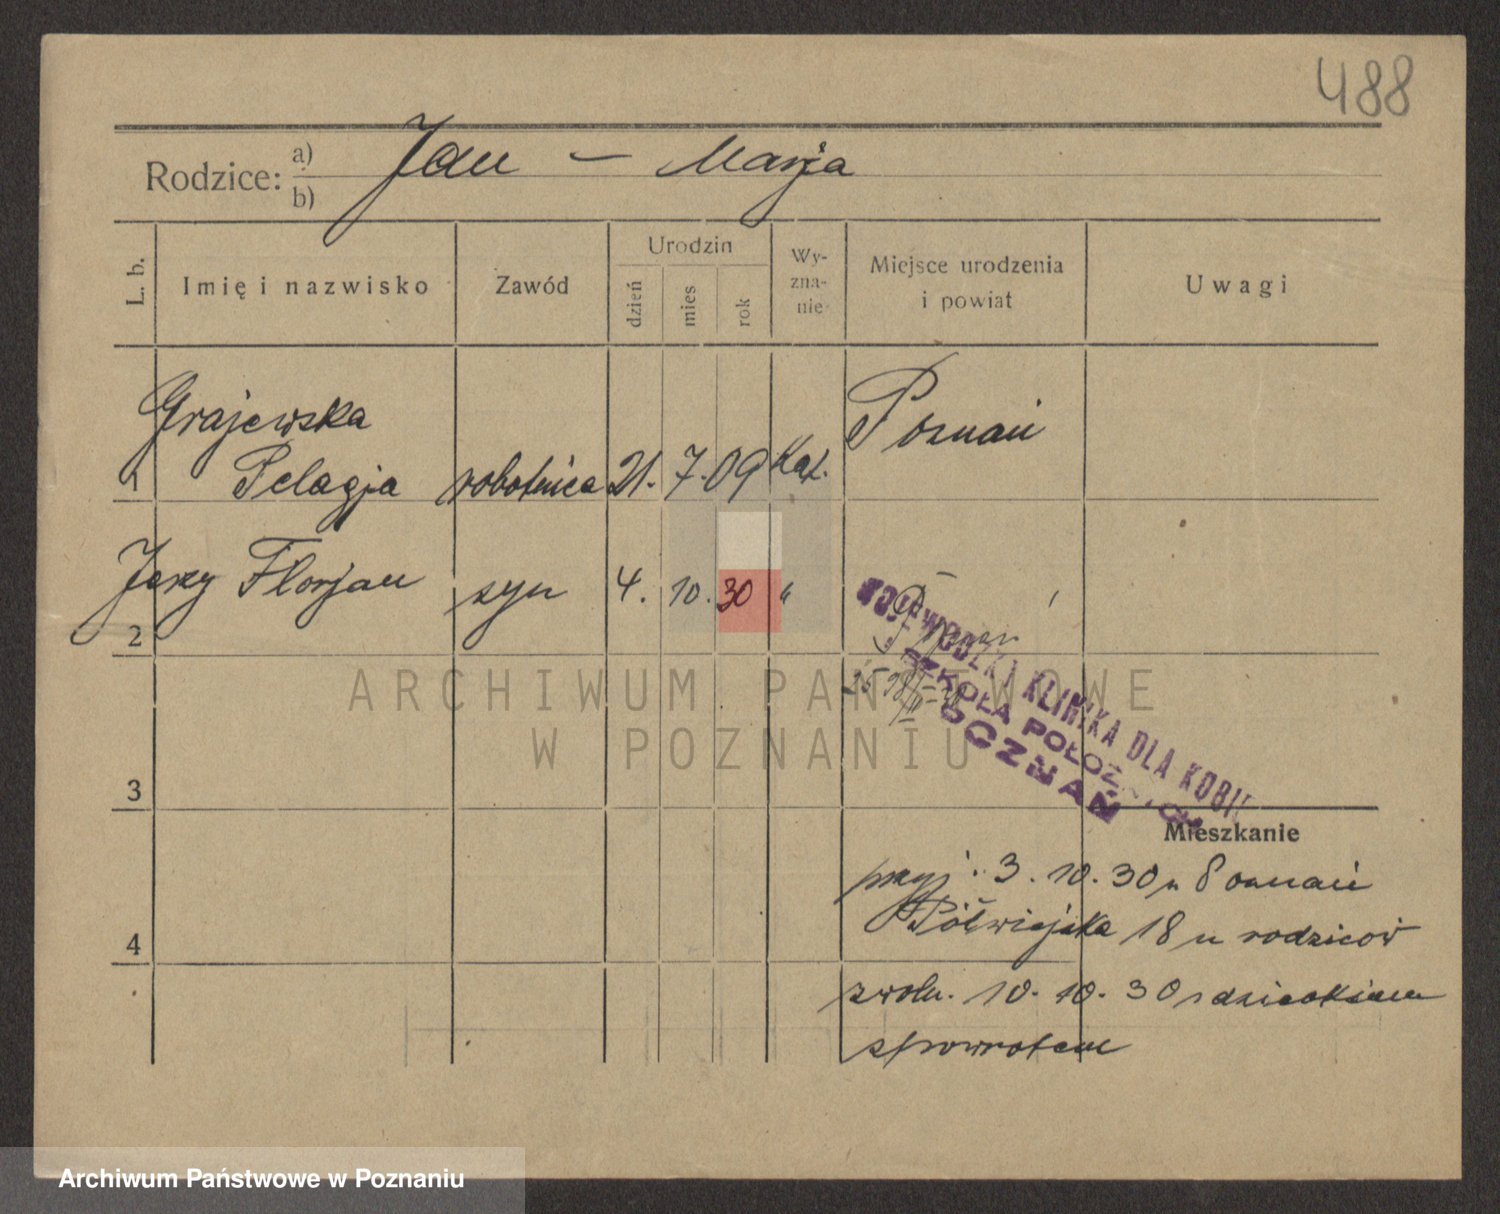 488
Rodzice: a) Jan – Marja
b)
L. b. Imię i nazwisko Zawód Urodzin dzień mies rok Wy-zna-nie Miejsce urodzenia i powiat Uwagi
Grajewska Poznań
1 Pelagja robotnica 21. 7. 09 Kat.
Jerzy Florjan syn 4. 10. 30 "
2
WOJEWÓDZKA KLINIKA DLA KOBIE
SZKOŁA POŁOŻNYCH
POZNAŃ
ARCHIWUM PAŃSTWOWE
W POZNANIU
3
Mieszkanie
przyj. 3. 10. 30 z Poznań
4 Półwiejska 18 u rodziców
zwoln. 10. 10. 30 z dzieckiem
spowrotem
Archiwum Państwowe w Poznaniu